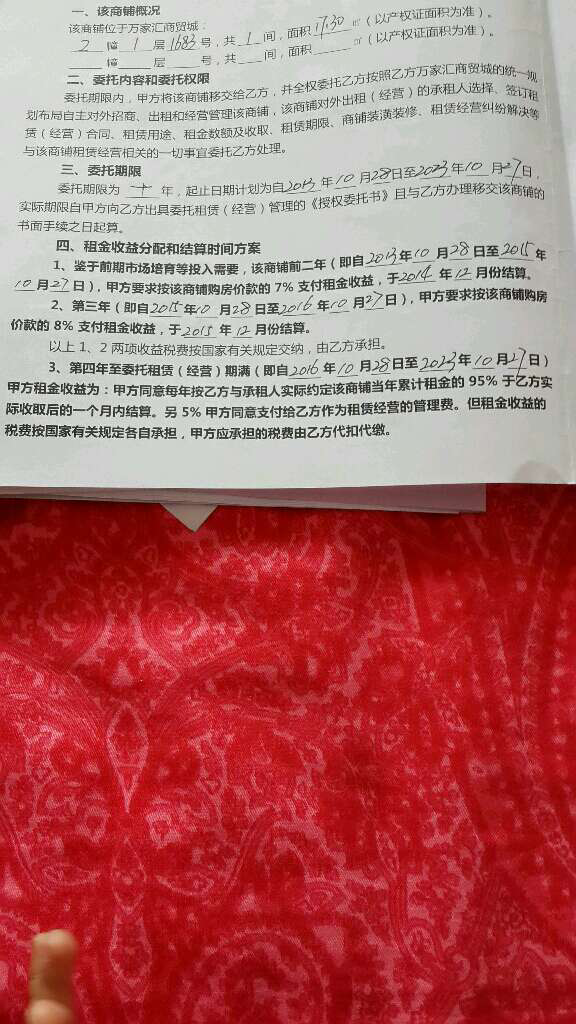 一、该商铺概况
该商铺位于万家汇商贸城：
2 幢 1 层 1683 号，共 1 间，面积 17.30 ㎡（以产权证面积为准）。
幢 层 号，共 间，面积 ㎡（以产权证面积为准）。
二、委托内容和委托权限
委托期限内，甲方将该商铺移交给乙方，并全权委托乙方按照乙方万家汇商贸城的统一规
划布局自主对外招商、出租和经营管理该商铺，该商铺对外出租（经营）的承租人选择、签订租
赁（经营）合同、租赁用途、租金数额及收取、租赁期限、商铺装潢装修、租赁经营纠纷解决等
与该商铺租赁经营相关的一切事宜委托乙方处理。
三、委托期限
委托期限为 十 年，起止日期计划为自2013 年 10 月28日至2023年 10 月27日，
实际期限自甲方向乙方出具委托租赁（经营）管理的《授权委托书》且与乙方办理移交该商铺的
书面手续之日起算。
四、租金收益分配和结算时间方案
1、鉴于前期市场培育等投入需要，该商铺前二年（即自2013年10 月28日至2015年
10月27日），甲方要求按该商铺购房价款的 7% 支付租金收益，于2014 年 12 月份结算。
2、第三年（即自2015年10 月28日至2016年10月27日），甲方要求按该商铺购房
价款的 8% 支付租金收益，于2015 年 12 月份结算。
以上 1、2 两项收益税费按国家有关规定交纳，由乙方承担。
3、第四年至委托租赁（经营）期满（即自2016年10月28日至2023年10月27日）
甲方租金收益为：甲方同意每年按乙方与承租人实际约定该商铺当年累计租金的 95% 于乙方实
际收取后的一个月内结算。另 5% 甲方同意支付给乙方作为租赁经营的管理费。但租金收益的
税费按国家有关规定各自承担，甲方应承担的税费由乙方代扣代缴。